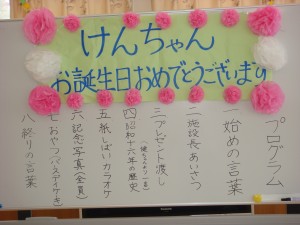 けんちゃん
お誕生日おめでとうございます
プログラム
一 始めの言葉
二 施設長あいさつ
三 プレゼント渡し
(健ちゃんより一言)
四 昭和十六年の歴史
五 紙しばい・カラオケ
六 記念写真(全員)
七 おやつ(バースデイケーキ)
八 終りの言葉